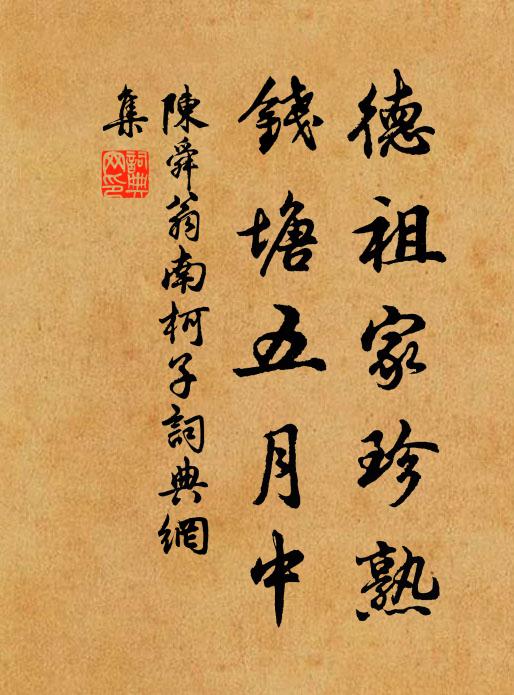 德祖家珍熟
錢塘五月中
陳舜翁南柯子詞典網
集
詞典
网印